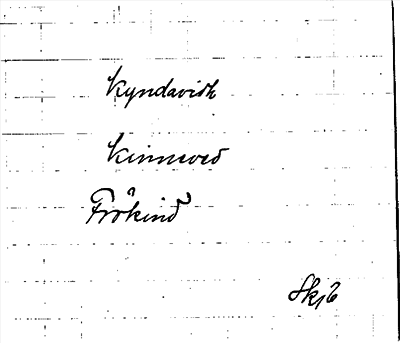 Kyndavidh
Kinneved
Frökind
Skjb